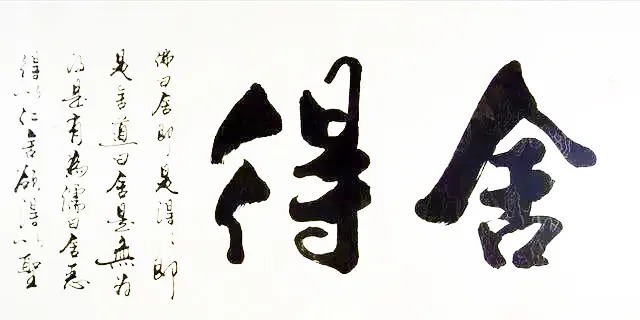 舍得
佛曰舍即是得〻即
是舍道曰舍是無为
得是有為儒曰舍惡
得以仁舍欲得以聖